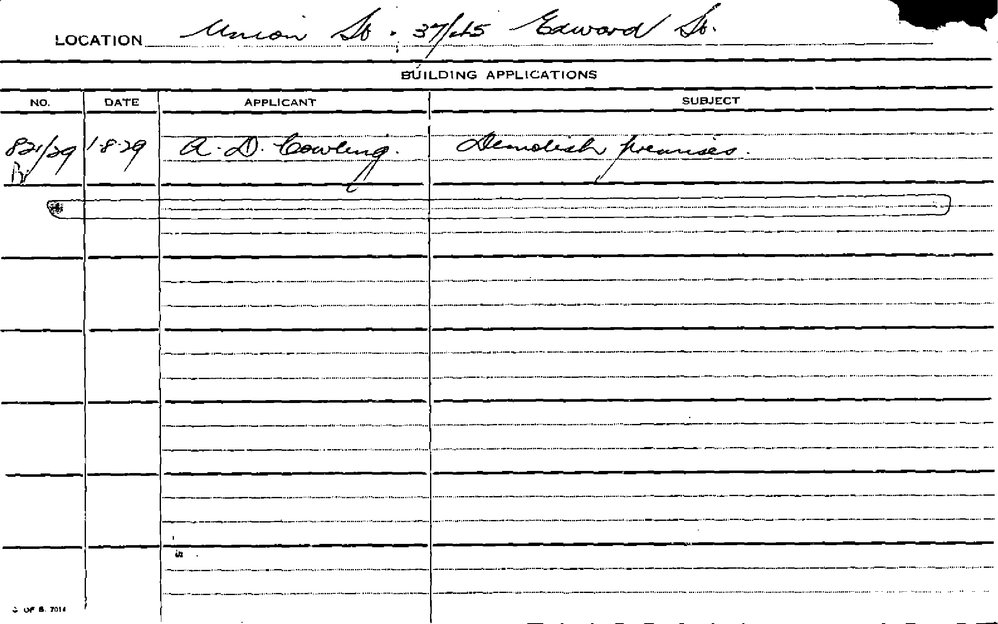 LOCATION Union St. 37/45 Edward St.
BUILDING APPLICATIONS
NO. DATE APPLICANT SUBJECT
821/29 1-8-29 A. D. Cowling. Demolish premises.
OF B. 7014